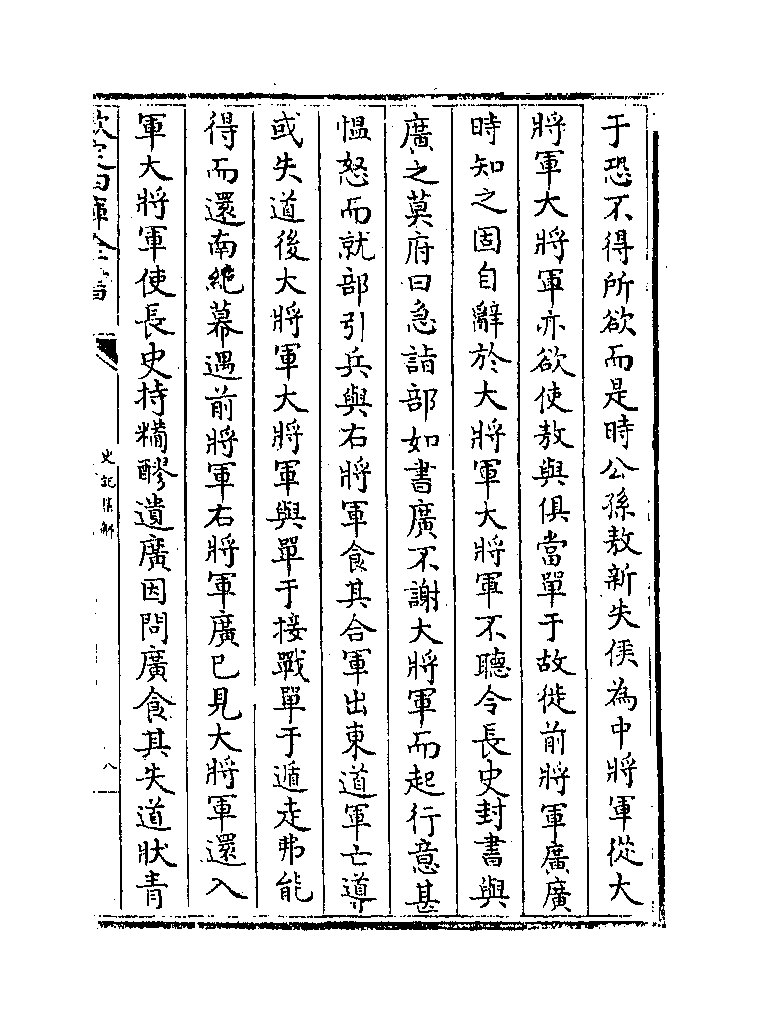 于恐不得所欲而是時公孫敖新失侯為中將軍從大
將軍大將軍亦欲使敖與俱當單于故徙前將軍廣廣
時知之固自辭於大將軍大將軍不聽令長史封書與
廣之莫府曰急詣部如書廣不謝大將軍而起行意甚
愠怒而就部引兵與右將軍食其合軍出東道軍亡導
或失道後大將軍大將軍與單于接戰單于遁走弗能
得而還南絶幕遇前將軍右將軍廣已見大將軍還入
軍大將軍使長史持糒醪遺廣因問廣食其失道狀青
欽定四庫全書
史記集解
八